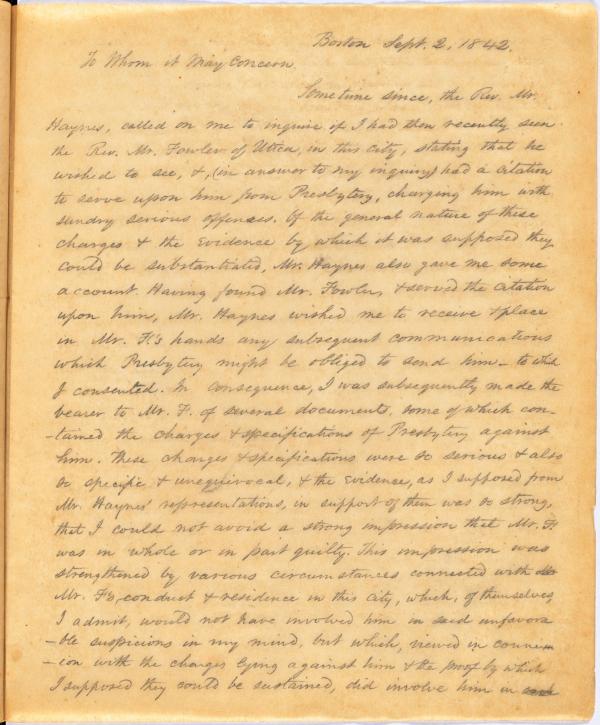 Boston Sept. 2, 1842.
To Whom it May Concern
Sometime since, the Rev. Mr.
Haynes, called on me to inquire if I had then recently seen
the Rev. Mr. Fowler of Uttica, in this city, stating that he
wished to see, &, (in answer to my inquiry) had a citation
to serve upon him from Presbytery, charging him with
sundry serious offenses. Of the general nature of these
charges & the evidence by which it was supposed they
could be substantiated, Mr. Haynes also gave me some
account. Having found Mr. Fowler, & served the citation
upon him, Mr. Haynes wished me to receive & place
in Mr. F's hands any subsequent communications
which Presbytery might be obliged to send him – to which
I consented. In consequence, I was subsequently made the
bearer to Mr. F. of several documents, some of which con-
-tained the charges & specifications of Presbytery against
him. These charges & specifications were so serious & also
so specific & unequivocal, & the evidence, as I supposed from
Mr. Haynes' representations, in support of them was so strong,
that I could not avoid a strong impression that Mr. F.
was in whole or in part guilty. This impression was
strengthened by various circumstances connected with
Mr. F's conduct & residence in this city, which, of themselves,
I admit, would not have involved him in said unfavora
-ble suspicions in my mind, but which, viewed in connex
-ion with the charges lying against him & the proof by which
I supposed they could be sustained, did involve him in